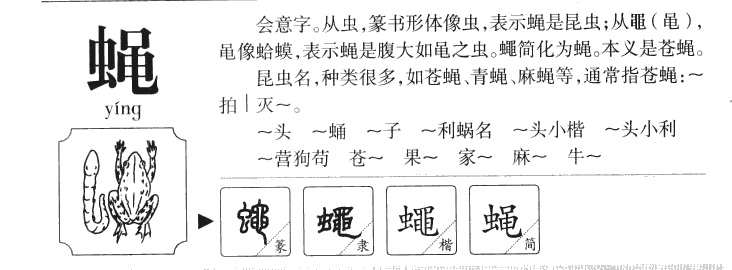 蝇
yíng
会意字。从虫,篆书形体像虫,表示蝇是昆虫;从黽(黾),
黾像蛤蟆,表示蝇是腹大如黾之虫。蠅简化为蝇。本义是苍蝇。
昆虫名,种类很多,如苍蝇、青蝇、麻蝇等,通常指苍蝇:~
拍|灭~。
~头 ~蛹 ~子 ~利蜗名 ~头小楷 ~头小利
~营狗苟 苍~ 果~ 家~ 麻~ 牛~
蠅 篆 蠅 隶 蠅 楷 蝇 简